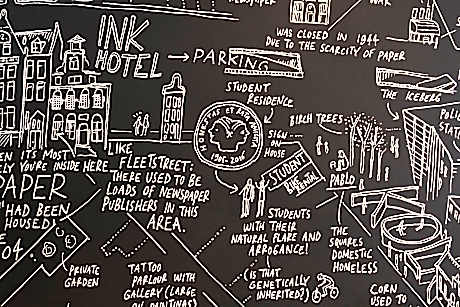 NEWSPAPER
WAR
WAS CLOSED IN 1944
DUE TO THE SCARCITY OF PAPER
INK
HOTEL
PARKING
PARKING
STUDENT
RESIDENCE
THE ICEBERG
BIRCH TREES
SIGN
ON
HOUSE
STUDENT
1905-2005
LIKE
FLEETSTREET:
THERE USED TO BE
LOADS OF NEWSPAPER
PUBLISHERS IN THIS
AREA.
IT'S MOST
YOU'RE INSIDE HERE
PAPER
"HAD BEEN
HOUSED!
PABLO
STUDENTS
WITH THEIR
NATURAL FLARE AND
ARROGANCE!
(IS THAT
GENETICALLY
INHERITED)
THE
SQUARES
DOMESTIC
HOMELESS
PRIVATE
GARDEN
TATTOO
PARLOUR WITH
GALLERY (LARGE
OIL PAINTINGS)
CORN
USED T